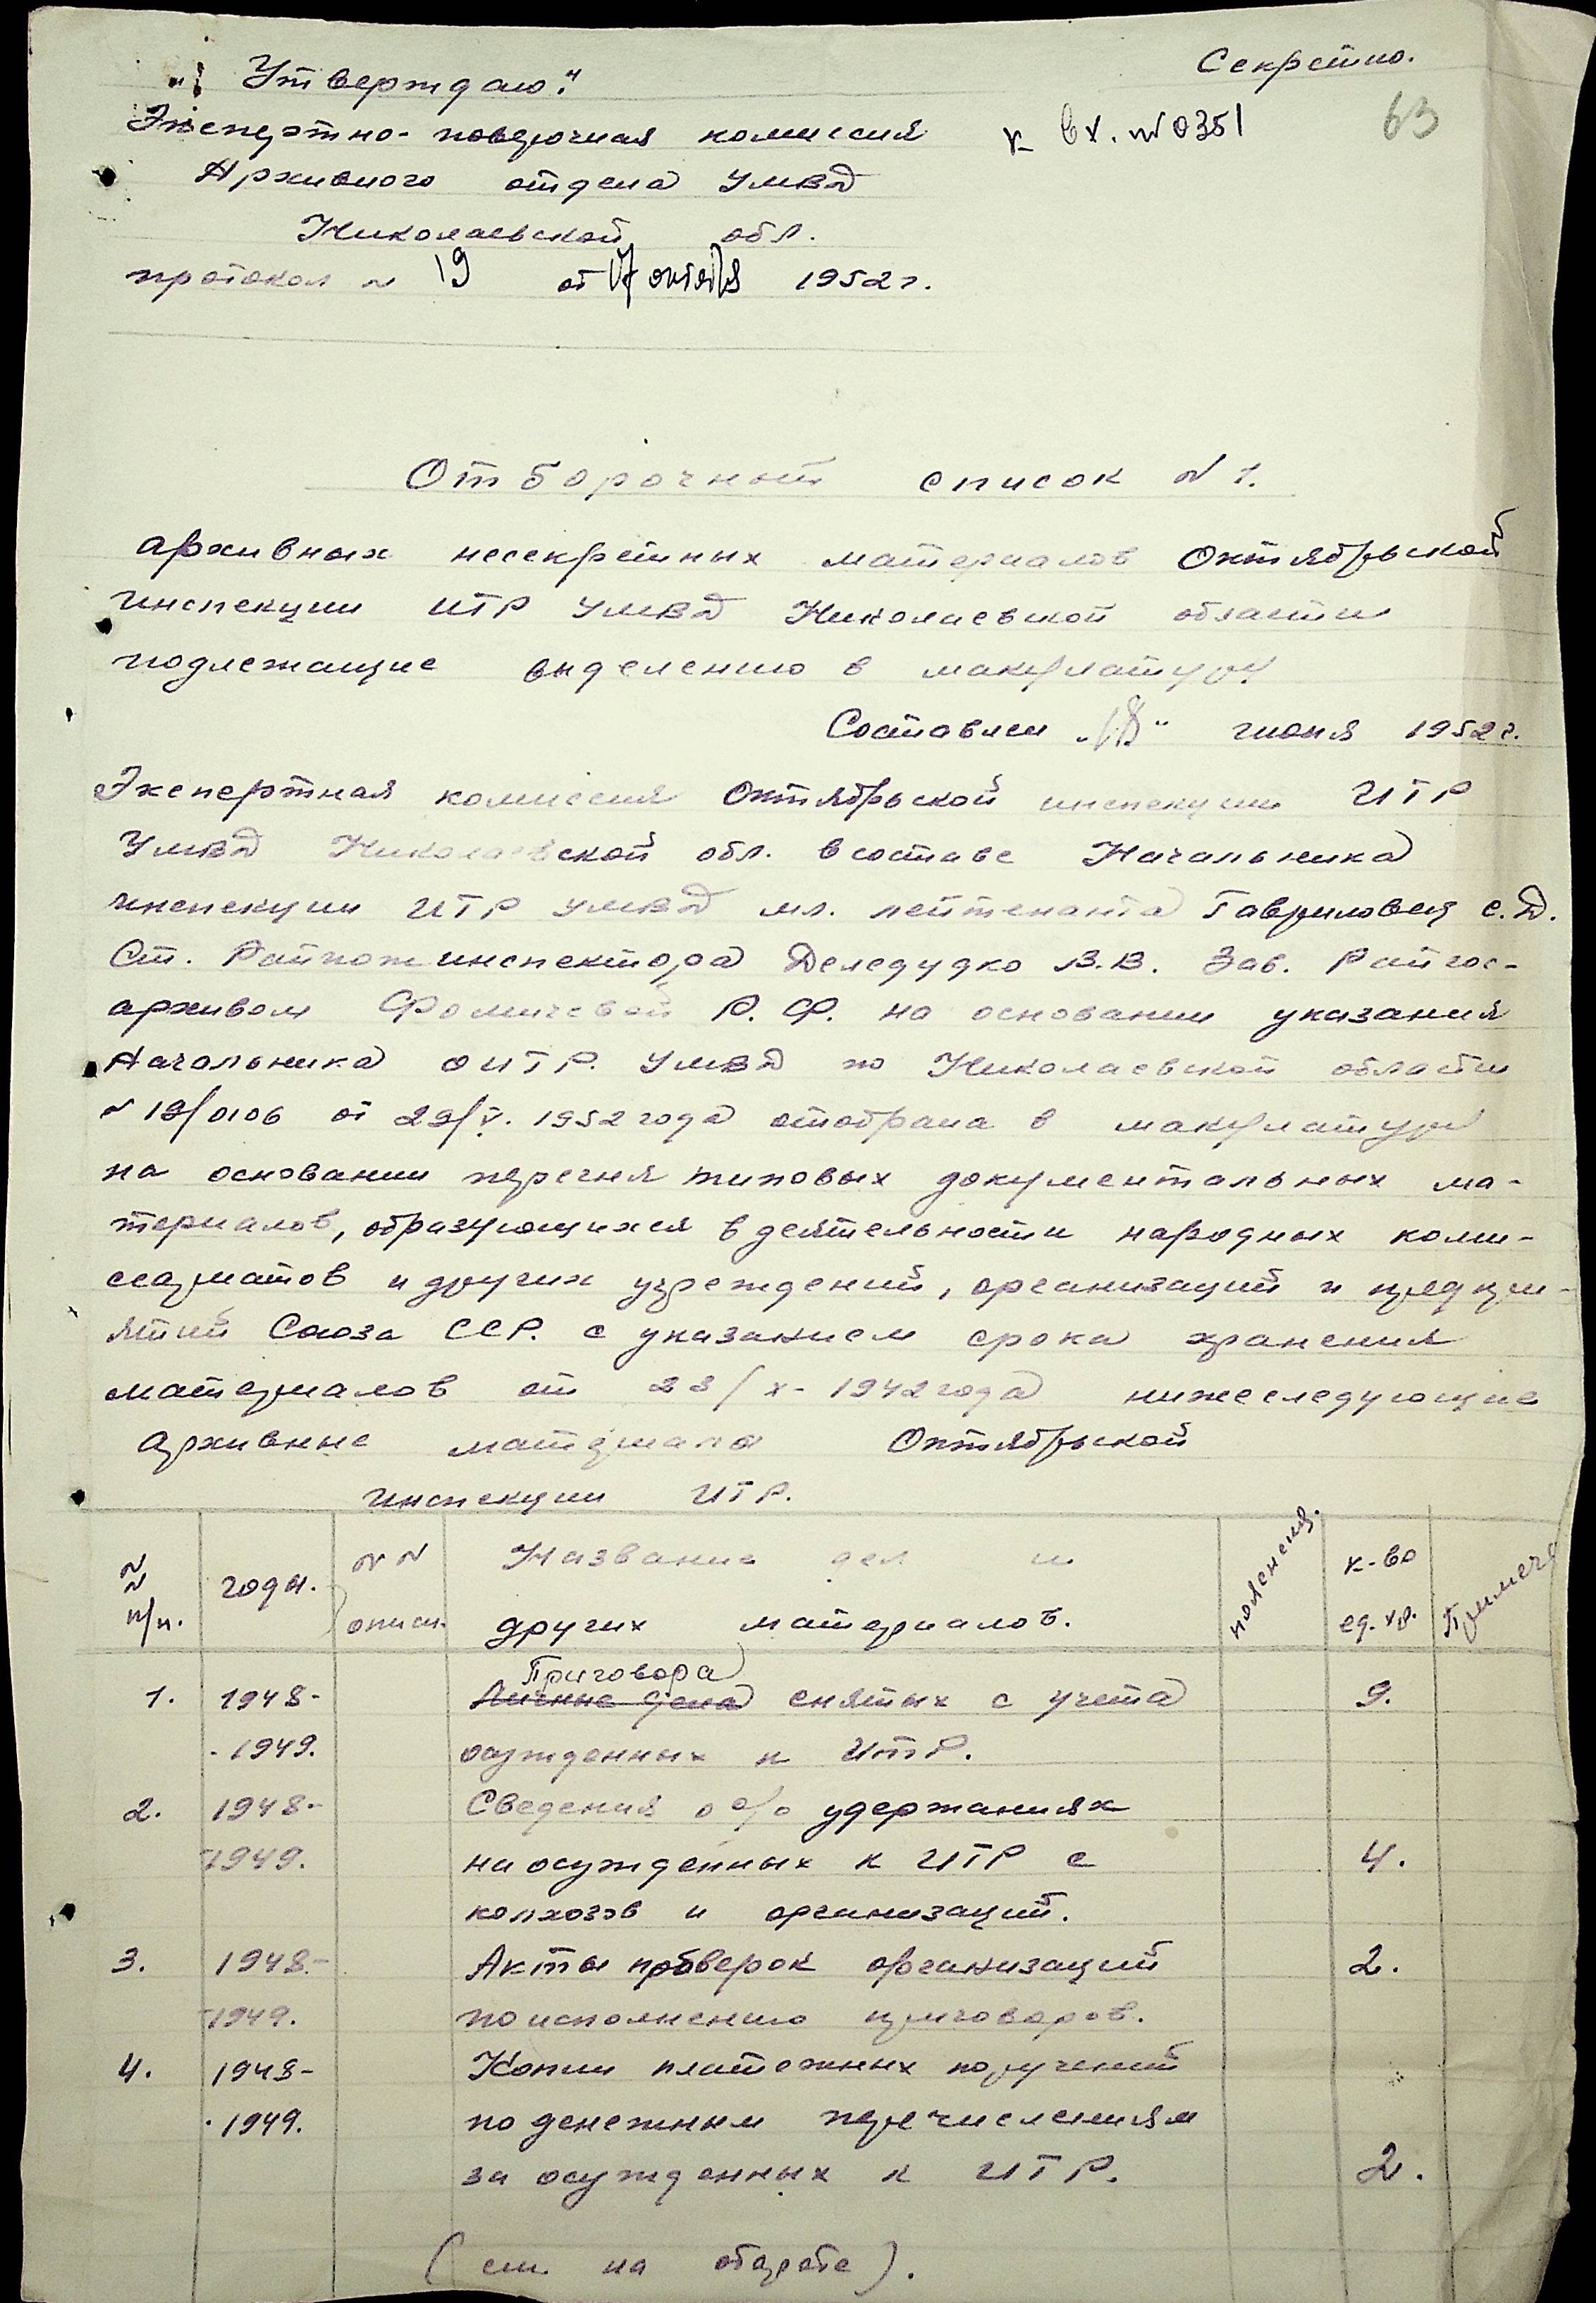 Секретно.
63
„Утверждаю."
Экспертно-поверочная комиссия
к вх. № 0351
Архивного отдела УМВД
Николаевской обл.
протокол № 19 от 17 октября 1952 г.
Отборочный список № 1.
архивных несекретных материалов Октябрьской
инспекции ИТР УМВД Николаевской области
подлежащие выделению в макулатуру
Составлен „18" июня 1952 г.
Экспертная комиссия Октябрьской инспекции ИТР
УМВД Николаевской обл. в составе Начальника
инспекции ИТР УМВД мл. лейтенанта Гавриловец С.Д.
Ст. Райпожинспектора Деледудко В.В. Зав. Райгос-
архивом Фомичевой Р. Ф. на основании указания
Начальника ОИТР. УМВД по Николаевской области
№ 19/0106 от 29/V. 1952 года отобрана в макулатуру
на основании перечня типовых документальных ма-
териалов, образующихся в деятельности народных коми-
ссариатов и других учреждений, организаций и предпри-
ятий Союза ССР. с указанием срока хранения
материалов от 28/X-1942 года нижеследующие
архивные материалы Октябрьской
инспекции ИТР.
№ № п/п. годы. № № описи. Название дел и других материалов. к-во ед. хр. Примеча
Приговора
1. 1948- Личные дела снятых с учета 9.
-1949. осужденных к ИТР.
2. 1948- Сведения о % удержаниях
-1949. на осужденных к ИТР с 4.
колхозов и организаций.
3. 1948- Акты проверок организаций 2.
-1949. по исполнению приговоров.
4. 1948- Копии платежных поручений
-1949. по денежным перечислениям
за осужденных к ИТР. 2.
(см. на обороте).